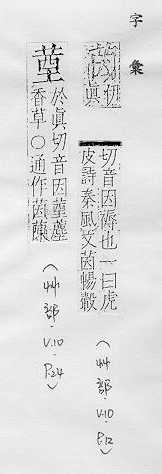 字彙
伊
眞
切音因蓐也一曰虎
皮詩秦風文茵暢轂
(艸部.V.10.P.12)
於眞切音因
香草○通作茵蔯
(艸部.V.10.P.24)